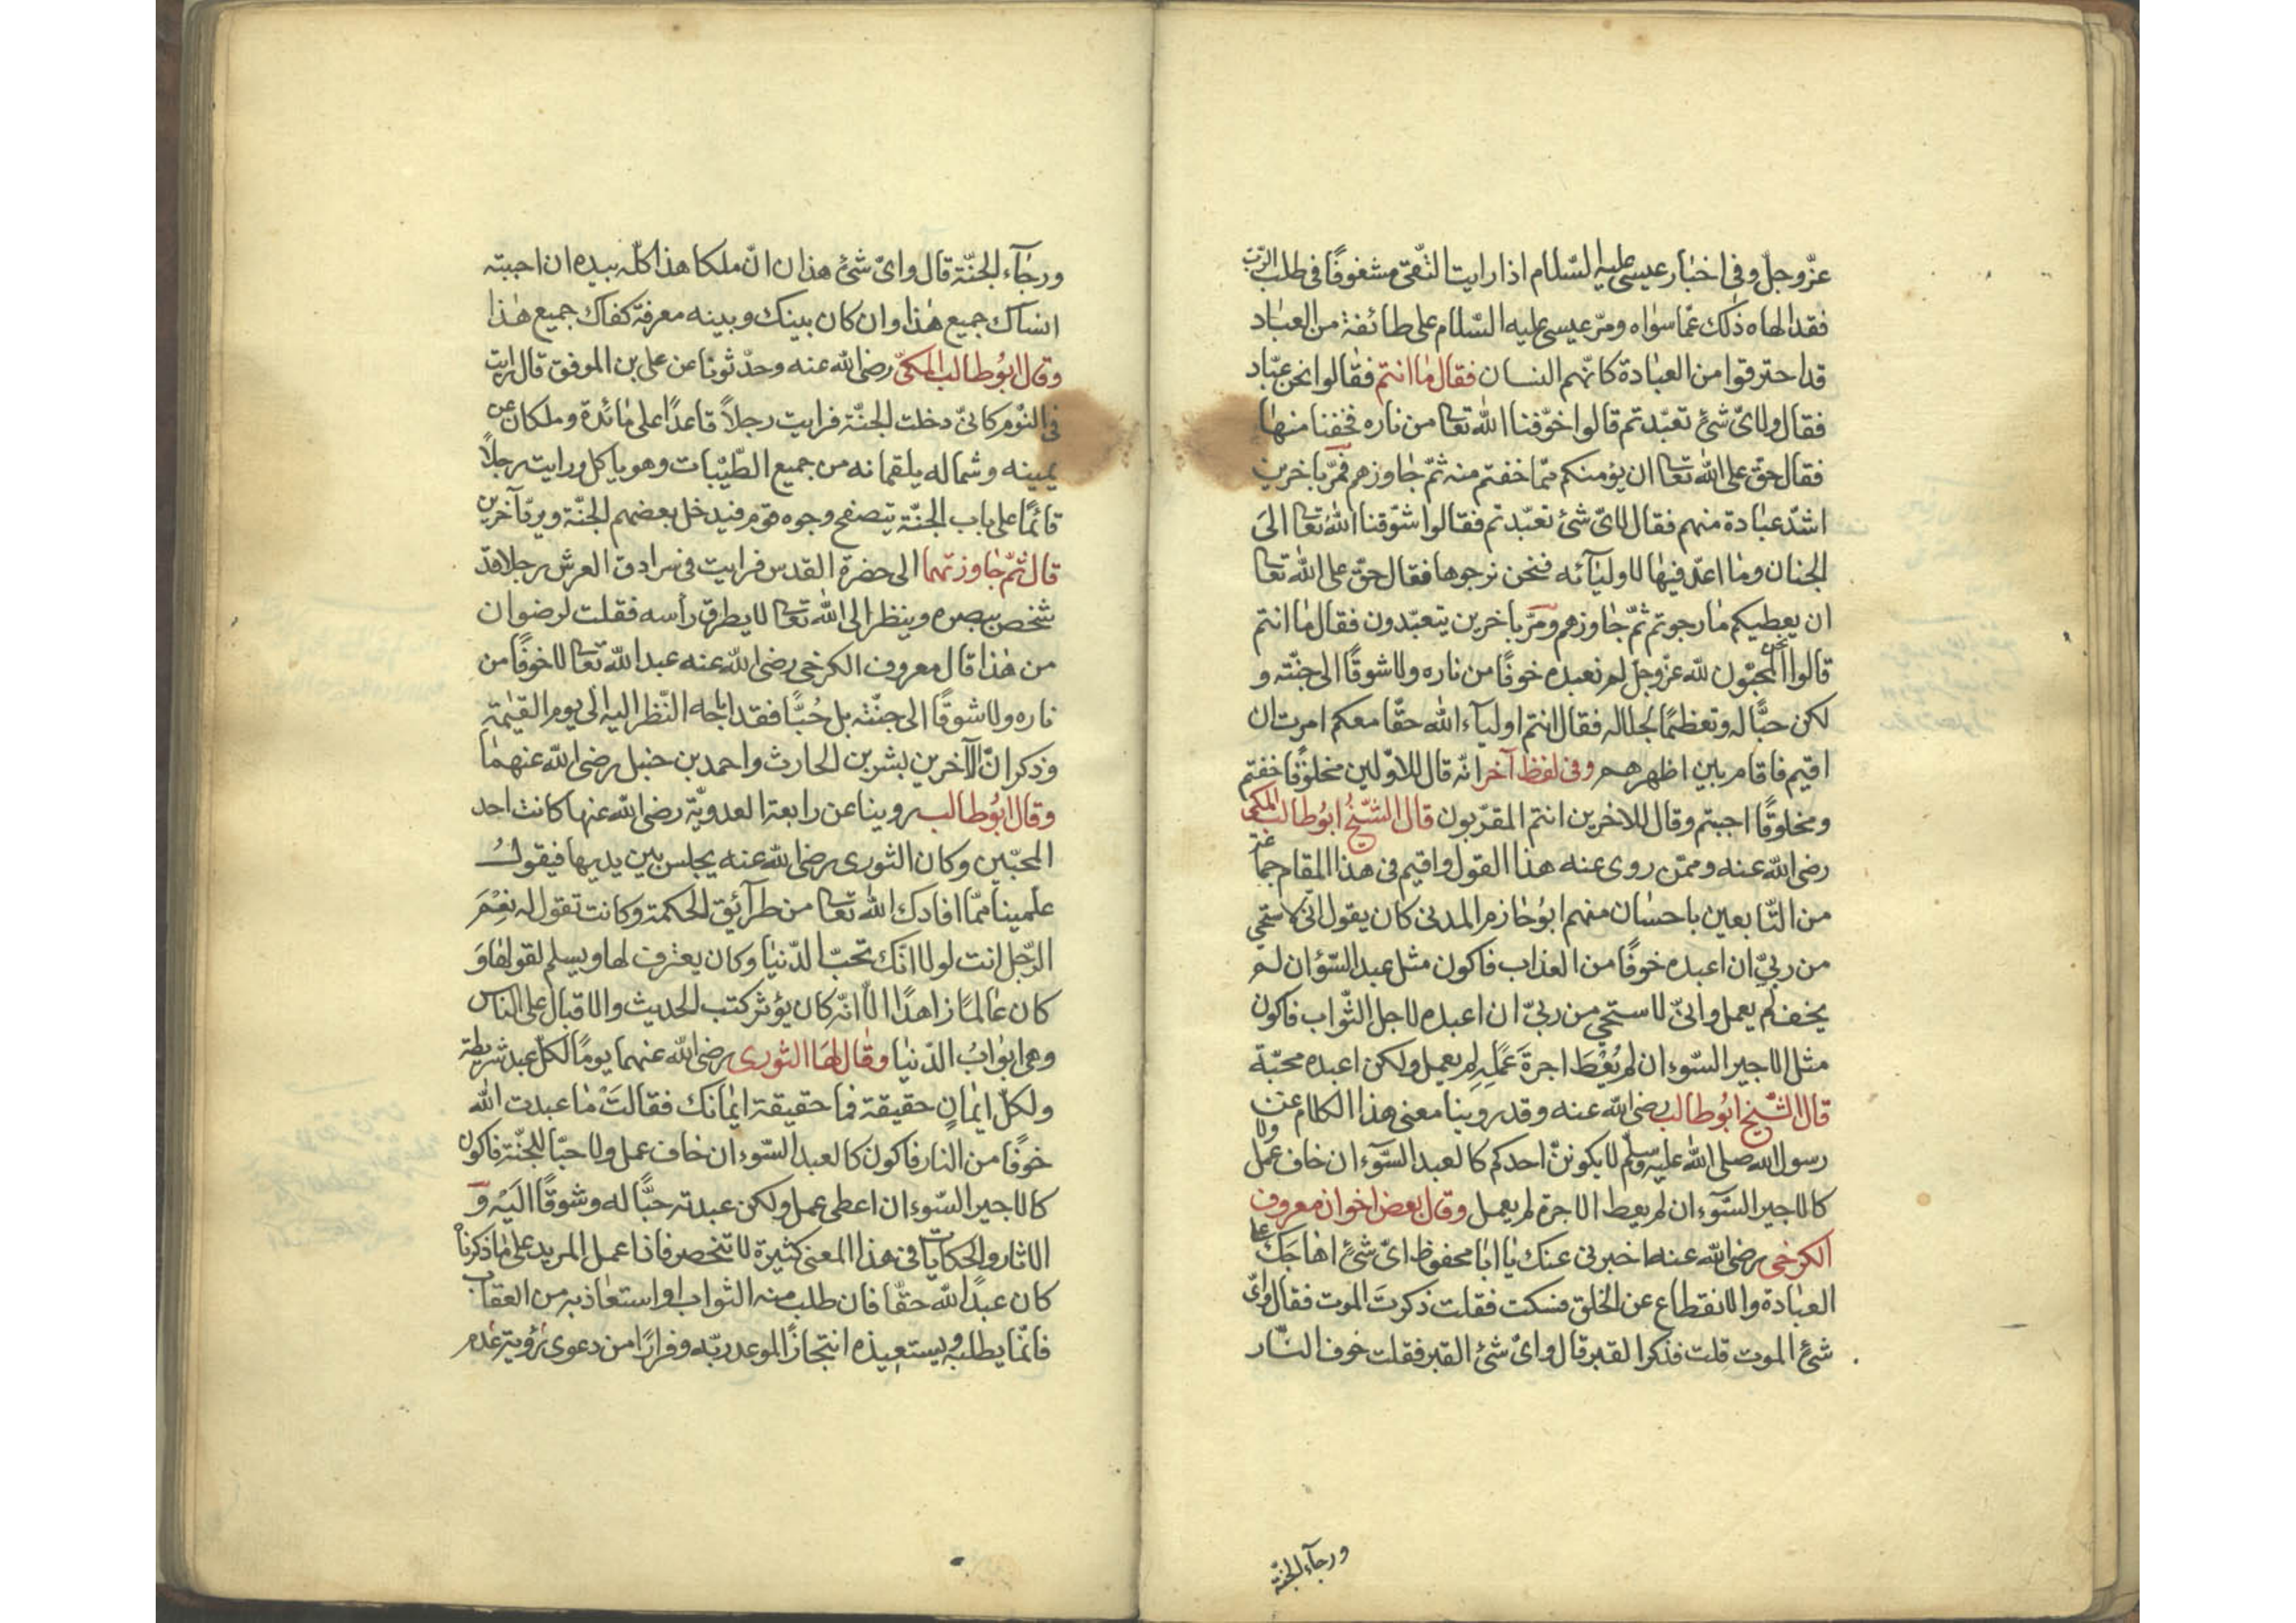 عزّوجلّ وفى اخبار عيسى عليه السّلام اذا رايت التّقىّ مشغوفًا فى طلب الرّبّ
فقد الهاه ذلك عمّا سواه ومرّ عيسى عليه السّلام على طائفة من العبّاد
قد احترقوا من العبادة كانّهم الشنان فقال ما انتم فقالوا نحن عبّاد
فقال ولاىّ شئ تعبّدتم قالوا خوّفنا الله تعا من ناره فخفنا منها
فقال حقّ على الله تعا ان يؤمنكم ممّا خفتم منه ثمّ جاوزهم فمرّ باخرين
اشدّ عبادة منهم فقال لاىّ شئ تعبّدتم فقالوا شوّقنا الله تعا الى
الجنان وما اعدّ فيها لاوليآئه فنحن نرجوها فقال حقّ على الله تعا
ان يعطيكم ما رجوتم ثمّ جاوزهم ومرّ باخرين يتعبّدون فقال ما انتم
قالوا نحن المحبّون لله عزّوجلّ لم نعبده خوفًا من ناره ولا شوقًا الى جنّته و
لكن حبًّا له وتعظيمًا لجلاله فقال انتم اوليآء الله حقّا معكم امرت ان
اقيم فاقام بين اظهرهم وفى لفظ آخر انّه قال للاوّلين مخلوقًا خفتم
ومخلوقًا احببتم وقال للاخرين انتم المقرّبون قال الشّيخ ابوطالب المكى
رضى الله عنه وممّن روى عنه هذا القول واقيم فى هذا المقام جماعة
من التّابعين باحسان منهم ابو حازم المدنى كان يقول انّى لاستحى
من ربىّ ان اعبده خوفًا من العذاب فاكون مثل عبد السّؤ ان لم
يخف لم يعمل وانىّ لاستحى من ربىّ ان اعبده لاجل الثّواب فاكون
مثل الاجير السّوء ان لم يُعْطَ اجرة عَمَلِهِ لم يعمل ولكن اعبده محبّة
قال الشّيخ ابوطالب رضى الله عنه وقد روينا معنى هذا الكلام عن
رسول الله صلى الله عليه وسلّم لا يكوننّ احدكم كالعبد السّوء ان خاف عمل ولا
كالاجير السّوء ان لم يعط الاجرة لم يعمل وقال بعض اخوان معروف
الكرخى رضى الله عنه اخبرنى عنك يا ابا محفوظ اىّ شئ اهاجَك على
العبادة والانقطاع عن الخلق فسكت فقلت ذكرتَ الموت فقال واىّ
شئ الموت قلت فذكر القبر قال واىّ شئ القبر فقلت خوف النّار
ورجآء الجنّة
ورجآء الجنّة قال واىّ شئ هذان انّ ملكا هذا كلّه بيده ان احببته
انساك جميع هذا وان كان بينك وبينه معرفة كفاك جميع هذا
وقال ابوطالب المكىّ رضى الله عنه وحدّثونا عن على بن الموفق قال رايت
فى النّوم كانىّ دخلت الجنّة فرايت رجلاً قاعدًا على مائدة وملكان عن
يمينه وشماله يلقمانه من جميع الطّيبات وهو ياكل ورايت رجلاً
قائمًا على باب الجنّة يتصفح وجوه قوم فيدخل بعضهم الجنّة ويردّ آخرين
قال ثمّ جاوزتهما الى حضرة القدس فرايت فى سرادق العرش رجلا قد
شخص ببصره وينظر الى الله تعا لا يطرق رأسه فقلت لرضوان
من هذا قال معروف الكرخى رضى الله عنه عبد الله تعا لا خوفًا من
ناره ولا شوقًا الى جنّته بل حُبًّا فقد اباحه النّظر اليه الى يوم القيٰمة
وذكر انّ الآخرين بشر بن الحارث واحمد بن حنبل رضى الله عنهما
وقال ابوطالب روينا عن رابعة العدويّة رضى الله عنها كانت احد
المحبّين وكان الثورى رضى الله عنه يجلس بين يديها فيقول
علمينا ممّا افادك الله تعا من طرآئق الحكمة وكانت تقول له نِعْمَ
الرّجل انت لولا انّك تحبّ الدّنيا وكان يعترف لها ويسلم لقولها وَ
كان عالمًا زاهدًا الاّ انّه كان يؤثر كتب الحديث والاقبال على الناس
وهى ابوابُ الدّنيا وقال لها الثورى رضى الله عنهما يومًا لكلّ عبد شريطة
ولكلّ ايمانٍ حقيقة فما حقيقة ايمانك فقالتْ ما عبدت الله
خوفًا من النار فاكون كالعبد السّوء ان خاف عمل ولا حبّا للجنّة فاكون
كالاجير السّوء ان اعطى عمل ولكن عبدته حبًّا له وشوقًا اليْه وَ
الاثار والحكايات فى هذا المعنى كثيرة لا تنحصر فاذا عمل المريد على ما ذكرنا
كان عبدًا لله حقّا فان طلب منه الثواب او استعاذ به من العقاب
فانّما يطلبه ويستعيذه انتجازًا لموعد ربّه وفرارًا من دعوى رؤية عدم